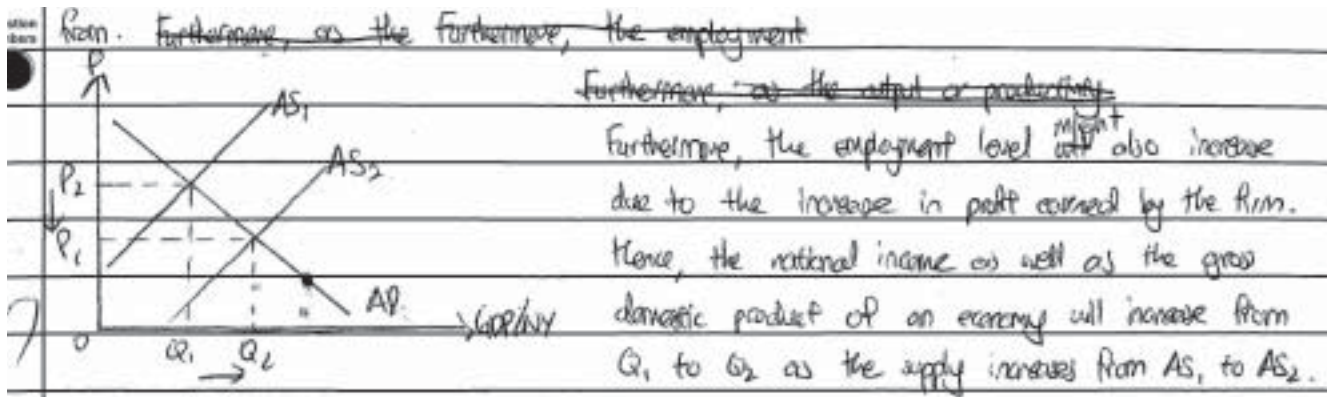 firm. Furthermore, as the Furthermore, the employment
Furthermore, as the output or productivity
Furthermore, the employment level might also increase
due to the increase in profit earned by the firm.
Hence, the national income as well as the gross
domestic product of an economy will increase from
Q1 to Q2 as the supply increases from AS1 to AS2.
P
AS1
AS2
P2
P1
AD
GDP/NY
0
Q1
Q2